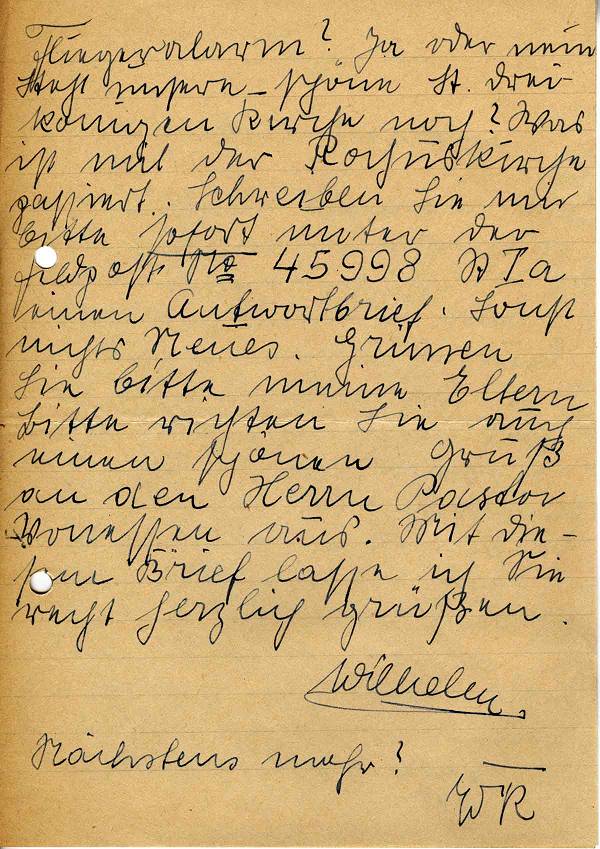 Fliegeralarm? Ja oder nein
steht unsere schöne St. drei-
königen Kirche noch? Was
ist mit der Rochuskirche
passiert. Schreiben Sie mir
bitte sofort unter der
Feldpost No 45998 A Ia
einen Antwortbrief. Sonst
nichts Neues. Grüssen
Sie bitte meine Eltern
bitte richten Sie auch
einen schönen Gruß
an den Herrn Pastor
Vonessen aus. Mit die-
sem Brief lasse ich Sie
recht herzlich grüßen.
Wilhelm.
Nächstens mehr?
WK